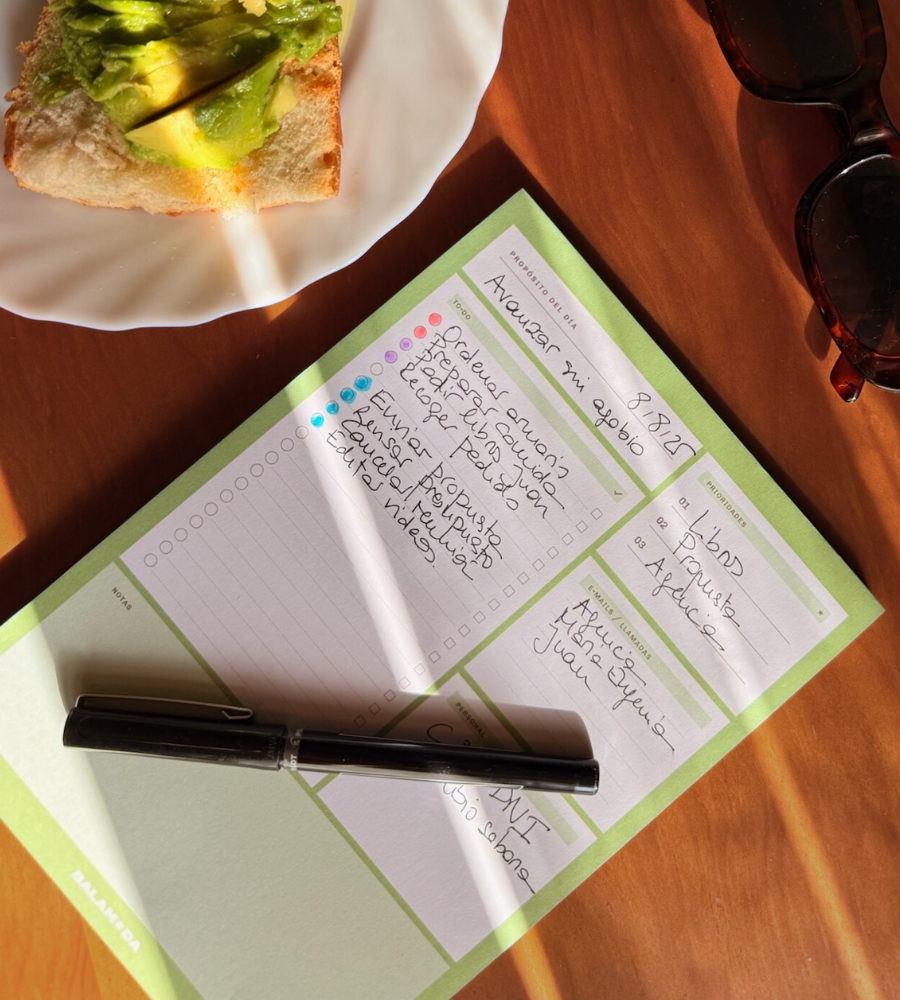 PROPÓSITO DEL DÍA
Avanzar sin agobio
8/8/25
TO-DO
Ordenar armario
Preparar comida
Pedir libros Juan
Recoger pedido
Enviar propuesta
Revisar presupuesto
Cancelar reunión
Editar videos
PRIORIDADES
01 Libros
02 Propuesta
03 Agencia
E-MAILS / LLAMADAS
Agencia
Maria Eugenia
Juan
PERSONAL
DNI
sabana
NOTAS
BALAMODA